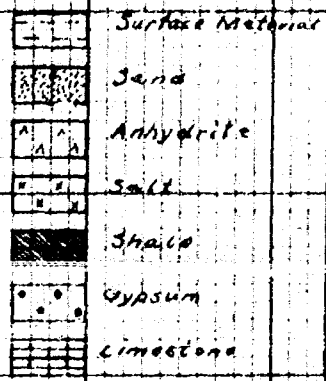 Surface Material
Sand
Anhydrite
Salt
Shale
Gypsum
Limestone